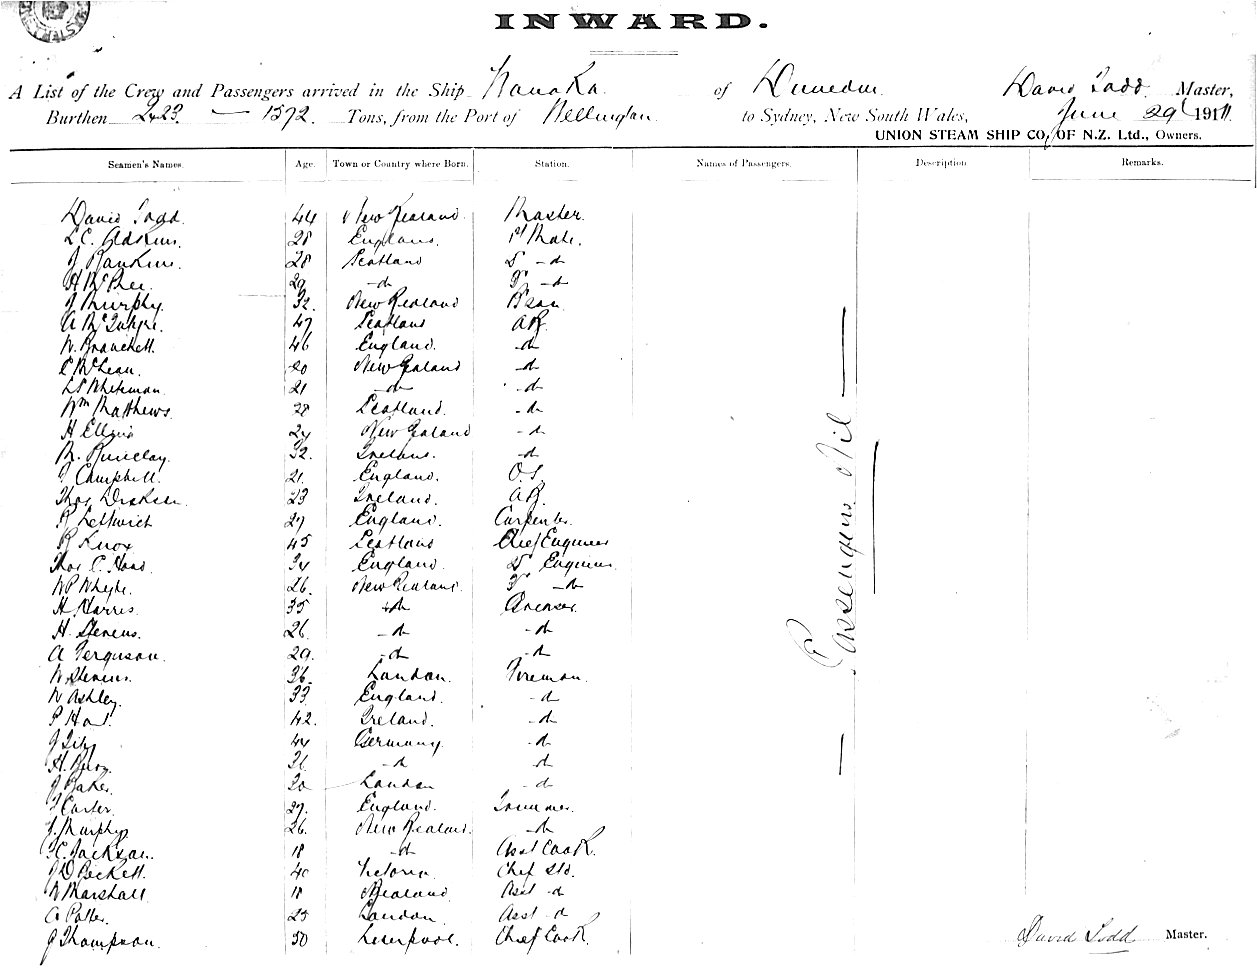 INWARD.
A List of the Crew and Passengers arrived in the Ship of Dunedin David Todd Master,
Burthen 2423 — 1572 Tons, from the Port of Wellington to Sydney, New South Wales, June 29 1911
UNION STEAM SHIP CO. OF N.Z. Ltd., Owners.
Seamen's Names. Age. Town or Country where Born. Station. Names of Passengers. Description Remarks.
David Todd 44 New Zealand Master
L C. Adskins 28 England 1st Mate
J Rankine 28 Scotland 2 - d
H McPhee 29 - d 3 - d
J Murphy 32 New Zealand B'san
A 47 Scotland AB
W. 46 England - d
McLean 20 New Zealand - d
Whiteman 21 - d - d
Wm Matthews 28 Scotland - d
H 24 New Zealand - d
32 Ireland - d
J Campbell 21 England O.S.
Thos 23 Ireland AB
R Leftwich 27 England Carpenter
R Knox 45 Scotland Chief Engineer
Thos C. Hood 34 England 2 Engineer
W P Whyte 26 New Zealand 3 - d
H. Harris 35 - d Greaser
H. Stevens 26 - d - d
A Ferguson 29 - d - d
W Stevens 36 London Fireman
W Ashley 33 England - d
P 42 Ireland - d
J 44 Germany - d
H. - d - d
J Baker London - d
J Carter 27 England Trimmer
J. Murphy 26 New Zealand - d
C. Jackson 18 - d Asst Cook
J D Beckett 40 Victoria Chief Std.
W Marshall 18 N Zealand Asst - d
Potter 25 London Asst - d
J Thompson 50 Liverpool Chief Cook
— Passengers Nil —
David Todd Master.